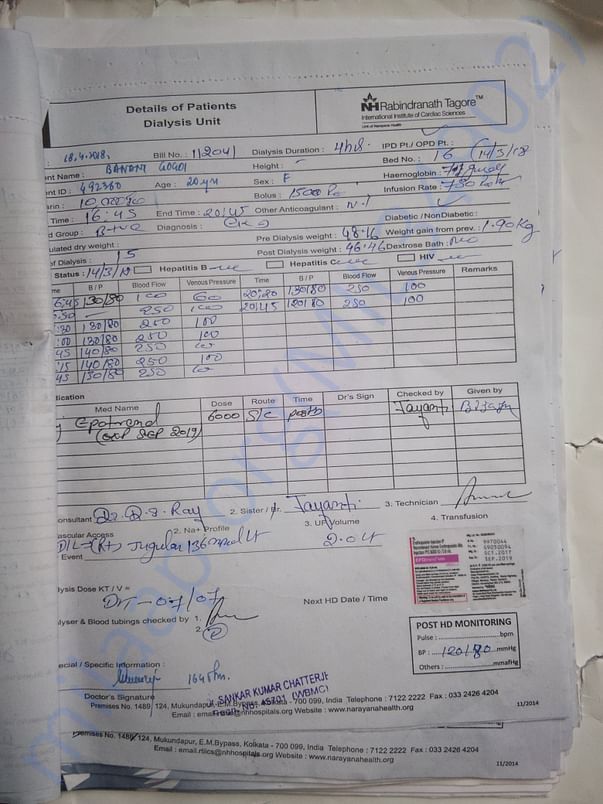 Details of Patients
Dialysis Unit
NH Rabindranath Tagore™
International Institute of Cardiac Sciences
Unit of Narayana Health
18.4.2018. Bill No.: 112041 Dialysis Duration: 4hrs. IPD Pt./ OPD Pt.:
ent Name: BANANI GOGOI Height: Bed No.: 16 (14/3/18
ent ID: 492360 Age: 20 yrs Sex: F Haemoglobin:
arin: 10,000 Bolus: 1500 Infusion Rate: 750
Time: 16:45 End Time: 20:45 Other Anticoagulant: Nil
d Group: B+ve Diagnosis: CKD Diabetic / NonDiabetic:
ulated dry weight: Pre Dialysis weight: 48.16 Weight gain from prev.: 1.90kg
of Dialysis: 15 Post Dialysis weight: 46.46 Dextrose Bath: NO
Status: 14/3/18 Hepatitis B -ve Hepatitis C -ve HIV -ve
me B / P Blood Flow Venous Pressure Time B / P Blood Flow Venous Pressure Remarks
6:45 130/80 100 60 20:20 130/80 250 100
:30 250 100 20:45 120/80 250 100
:30 130/80 250 100
:00 130/80 250 100
45 140/80 250 100
:15 140/80 250 100
45 130/80 250
lication
Med Name Dose Route Time Dr's Sign Checked by Given by
Epotrend 6000 S/C Jayanti
(EXP SEP 2019)
onsultant Dr. D.S. Ray 2. Sister / Br. Jayanti 3. Technician
ascular Access 2. Na+ Profile 3. UF Volume 4. Transfusion
D/L-(Rt) Jugular 136 mmol/lt 2.0 Lt
Event
lysis Dose KT / V =
Next HD Date / Time
lyser & Blood tubings checked by 1.
2.
POST HD MONITORING
Pulse: bpm
BP: 120/80 mmHg
Others: mmafHg
ecial / Specific Information:
Doctor's Signature
SANKAR KUMAR CHATTERJE
Regn. No. 45701 (WBMC)
Premises No. 1489, 124, Mukundapur, E.M.Bypass, Kolkata - 700 099, India Telephone : 7122 2222 Fax : 033 2426 4204
Email : email.rtiics@nhhospitals.org Website : www.narayanahealth.org
11/2014
Premises No. 1489, 124, Mukundapur, E.M.Bypass, Kolkata - 700 099, India Telephone : 7122 2222 Fax : 033 2426 4204
Email : email.rtiics@nhhospitals.org Website : www.narayanahealth.org
11/2014